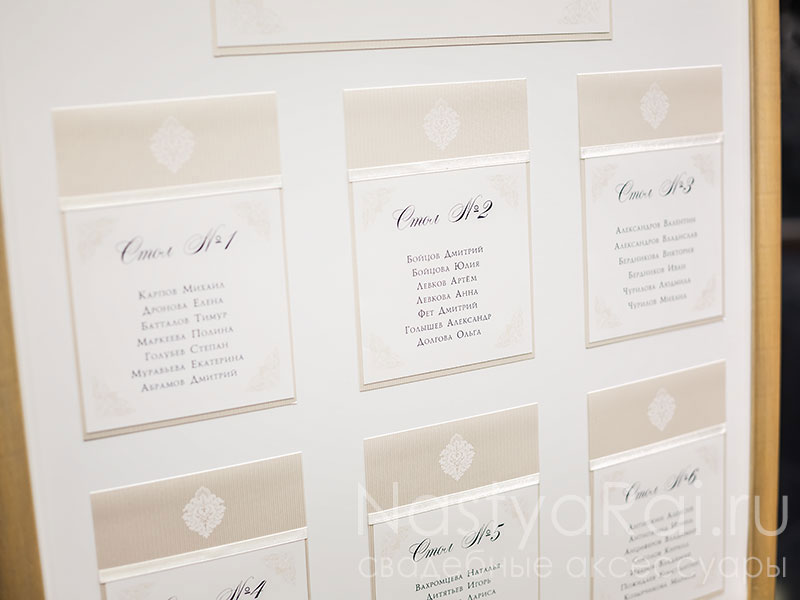 Стол №1
Карпов Михаил
Дронова Елена
Батталов Тимур
Маркеева Полина
Голубев Степан
Муравьева Екатерина
Абрамов Дмитрий
Стол №2
Бойцов Дмитрий
Бойцова Юлия
Левков Артём
Левкова Анна
Фет Дмитрий
Голышев Александр
Долгова Ольга
Стол №3
Александров Валентин
Александров Владислав
Бердникова Виктория
Бердников Иван
Чурилова Людмила
Чурилов Михаил
Стол №4
Стол №5
Вахромцева Наталья
Дитятьев Игорь
Лариса
Стол №6
NastyaRai.ru
свадебные аксессуары